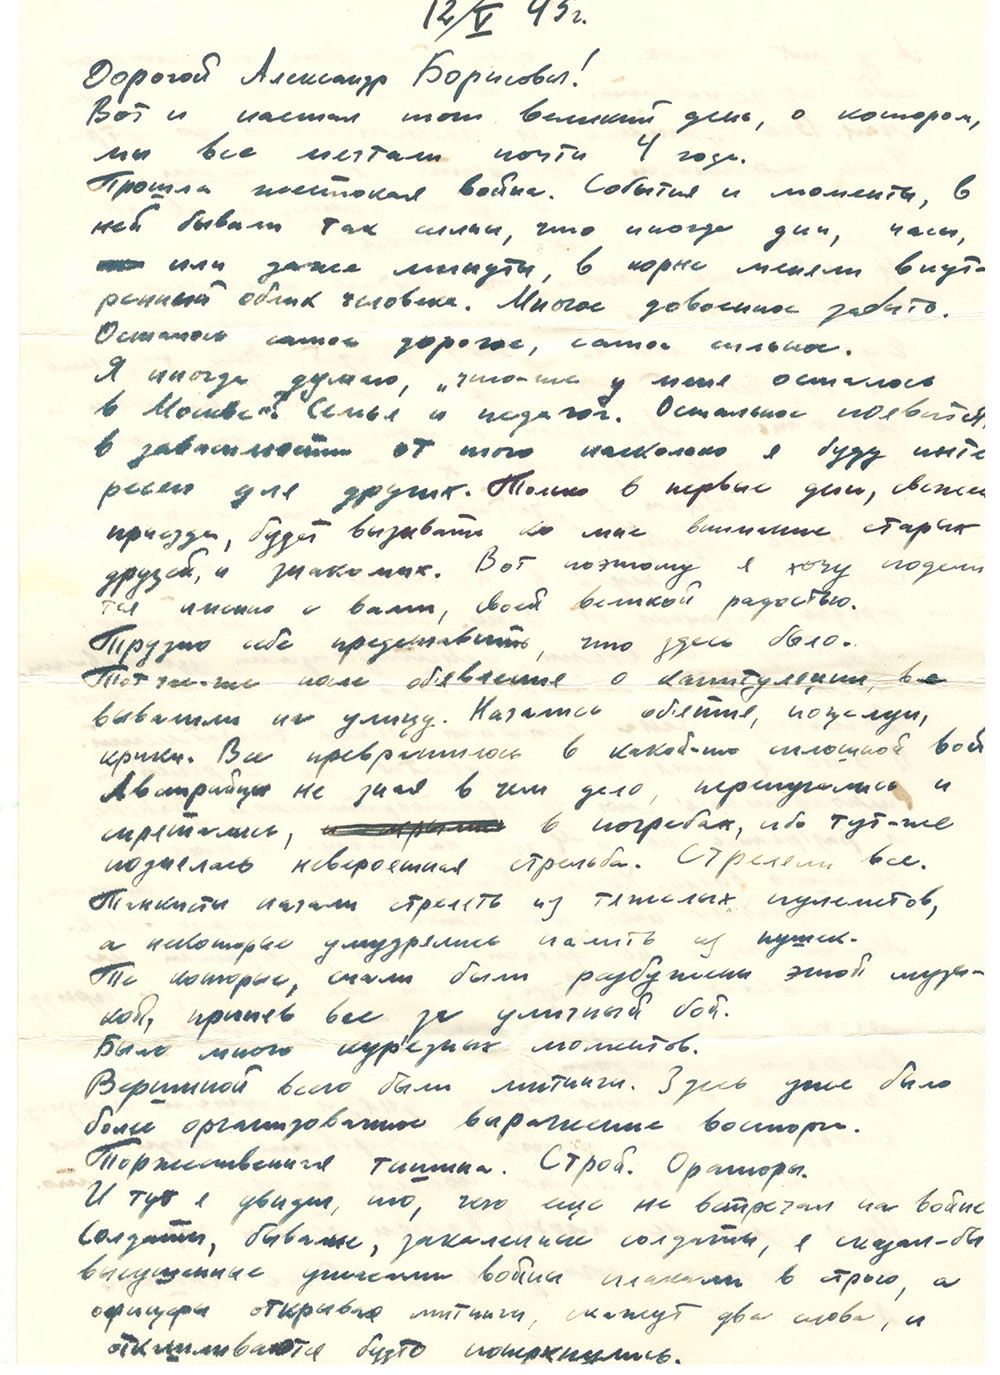 12/V 45 г.
Дорогой Александр Борисович!
Вот и настал тот великий день, о котором,
мы все мечтали почти 4 года.
Прошла жестокая война. События и моменты, в
ней бывали так сильны, что иногда дни, часы,
или даже минуты, в корне меняли внут-
ренний облик человека. Многое довоенное забыто.
Осталось самое дорогое, самое сильное.
Я иногда думаю, „что-же у меня осталось
в Москве"? Семья и педагог. Остальное появится,
в зависимости от того насколько я буду инте
ресен для других. Только в первые дни, свежего
приезда, будет вызывать ко мне внимание старых
друзей, и знакомых. Вот поэтому я хочу подели
тся именно с вами, своей великой радостью.
Трудно себе представить, что здесь было.
Тот час-же после объявления о капитуляции, все
вывалили на улицу. Начались объятия, поцелуи,
крики. Все превратилось в какой-то сплошной вой
Австрийцы не зная в чем дело, перепугались и
спрятались, в погребах, ибо тут-же
поднялась невероятная стрельба. Стреляли все.
Танкисты начали стрелять из тяжелых пулеметов,
а некоторые умудрялись палить из пушек.
Те которые, спали были разбужены этой музы-
кой, приняв все за уличный бой.
Было много курьезных моментов.
Вершиной всего были митинги. Здесь уже было
более организованное выражение восторга.
Торжественная тишина. Строй. Ораторы.
И тут я увидел, то, чего еще не встречал на войне
Солдаты, бывалые, закаленные солдаты, я сказал-бы
высушенные ужасами войны плакали в строю, а
офицеры открывая митинги, скажут два слова, и
откашливаются будто поперхнулись.